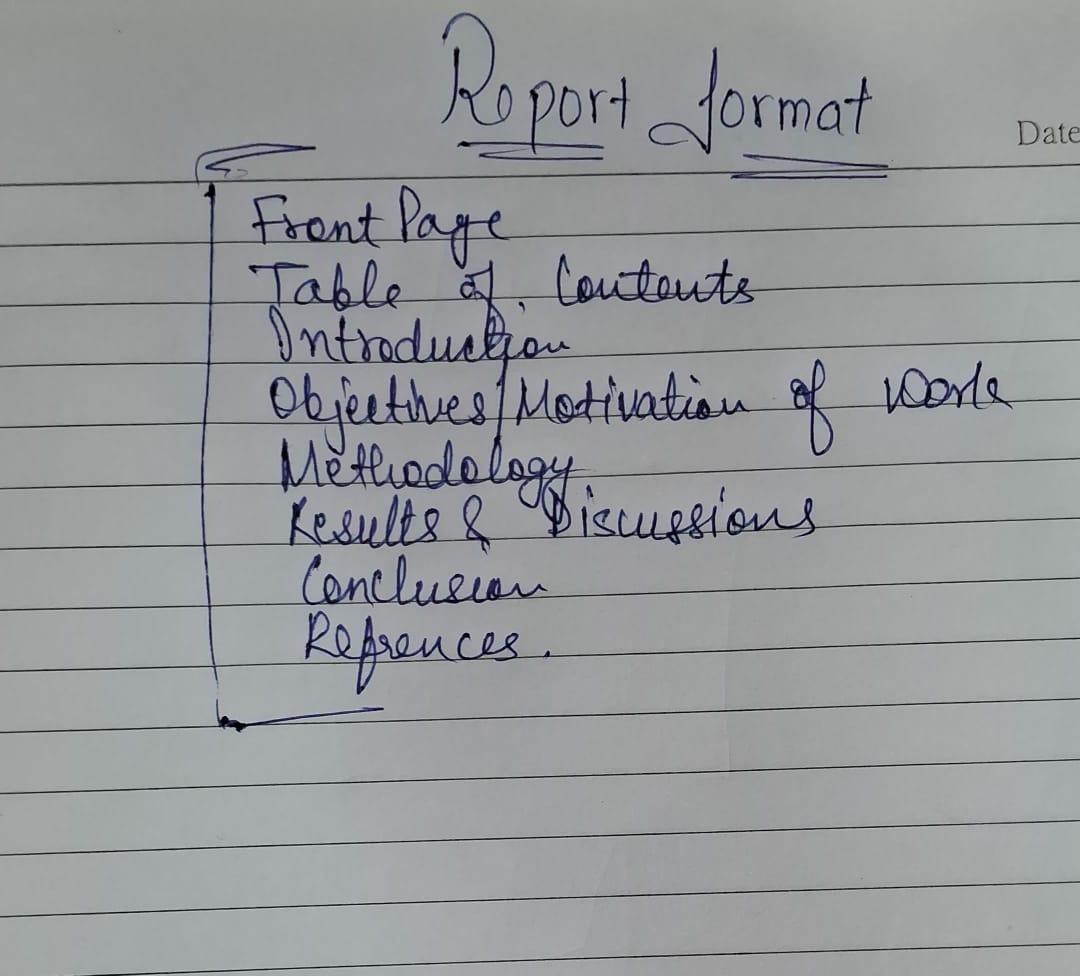 Report format
Date
Front Page
Table of Contents
Introduction
Objectives/Motivation of work
Methodology
Results & Discussions
Conclusion
Refrences.